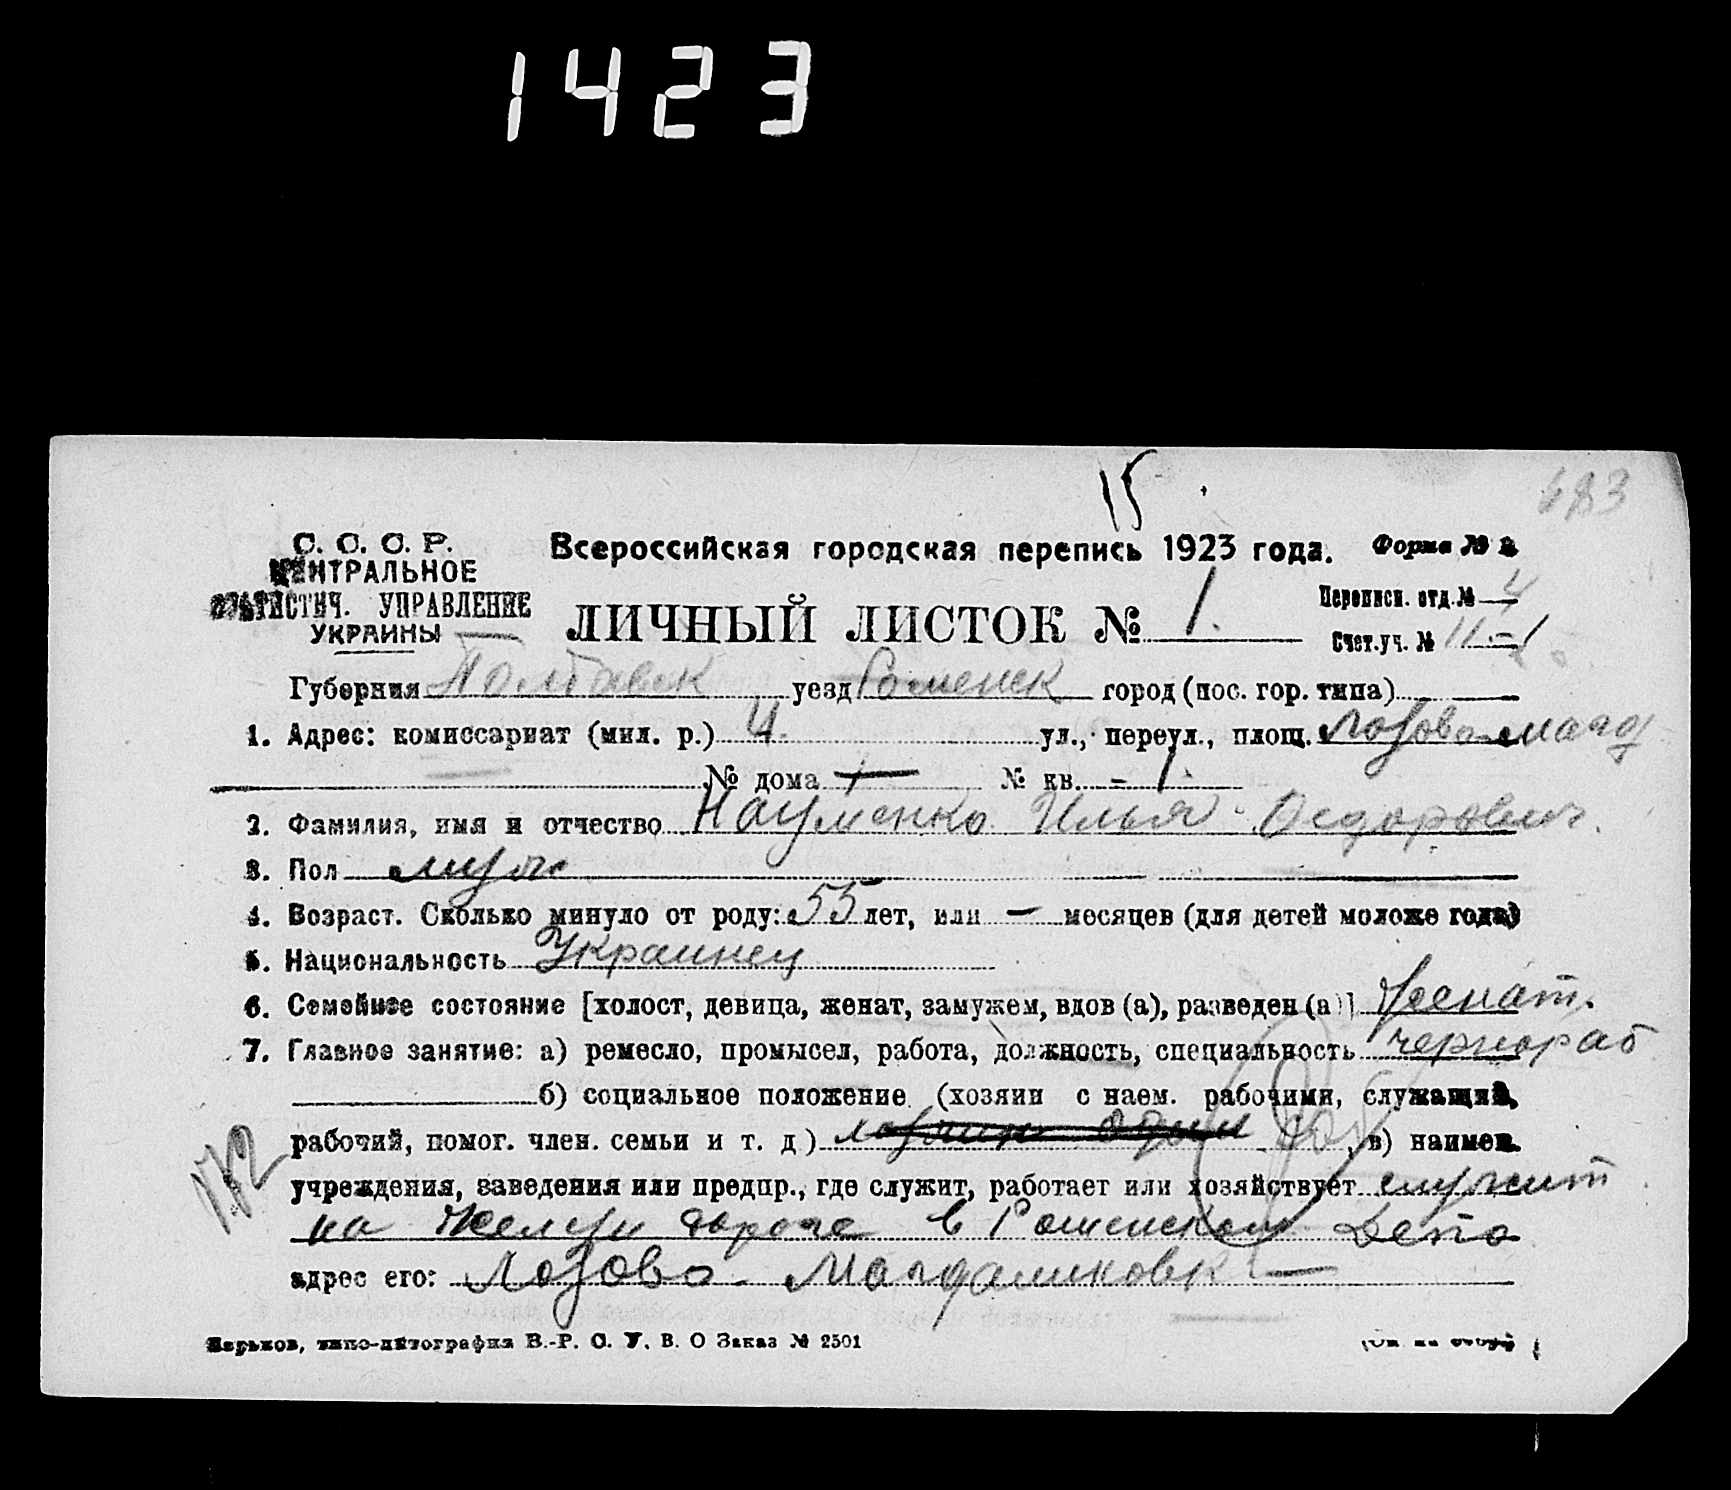 1423
15
483
С. С. С. Р.
ЦЕНТРАЛЬНОЕ
СТАТИСТИЧ. УПРАВЛЕНИЕ
УКРАИНЫ
Всероссийская городская перепись 1923 года. Форма № 2
ЛИЧНЫЙ ЛИСТОК № 1.
Переписн. отд. № 4
Счет. уч. № 11-1
Губерния Полтавск уезд Роменск город (пос. гор. типа)
1. Адрес: комиссариат (мил. р.) 4. ул., переул., площ. Лозово-Магд
№ дома 1 № кв. - 1.
2. Фамилия, имя и отчество Науменко Илья Федорович.
3. Пол муж
4. Возраст. Сколько минуло от роду: 55 лет, или — месяцев (для детей моложе года)
5. Национальность Украинец
6. Семейное состояние [холост, девица, женат, замужем, вдов (а), разведен (а)] Женат.
7. Главное занятие: а) ремесло, промысел, работа, должность, специальность чернораб
б) социальное положение (хозяин с наем. рабочими, служащий,
рабочий, помог. член. семьи и т. д.) раб, в) наимен.
учреждения, заведения или предпр., где служит, работает или хозяйствует служит
на Желез дороге в Роменском Депо
адрес его: Лозово-Магдалиновк
Харьков, типо-литография В.-Р. С. У. В. О Заказ № 2501
(См. на обор.)